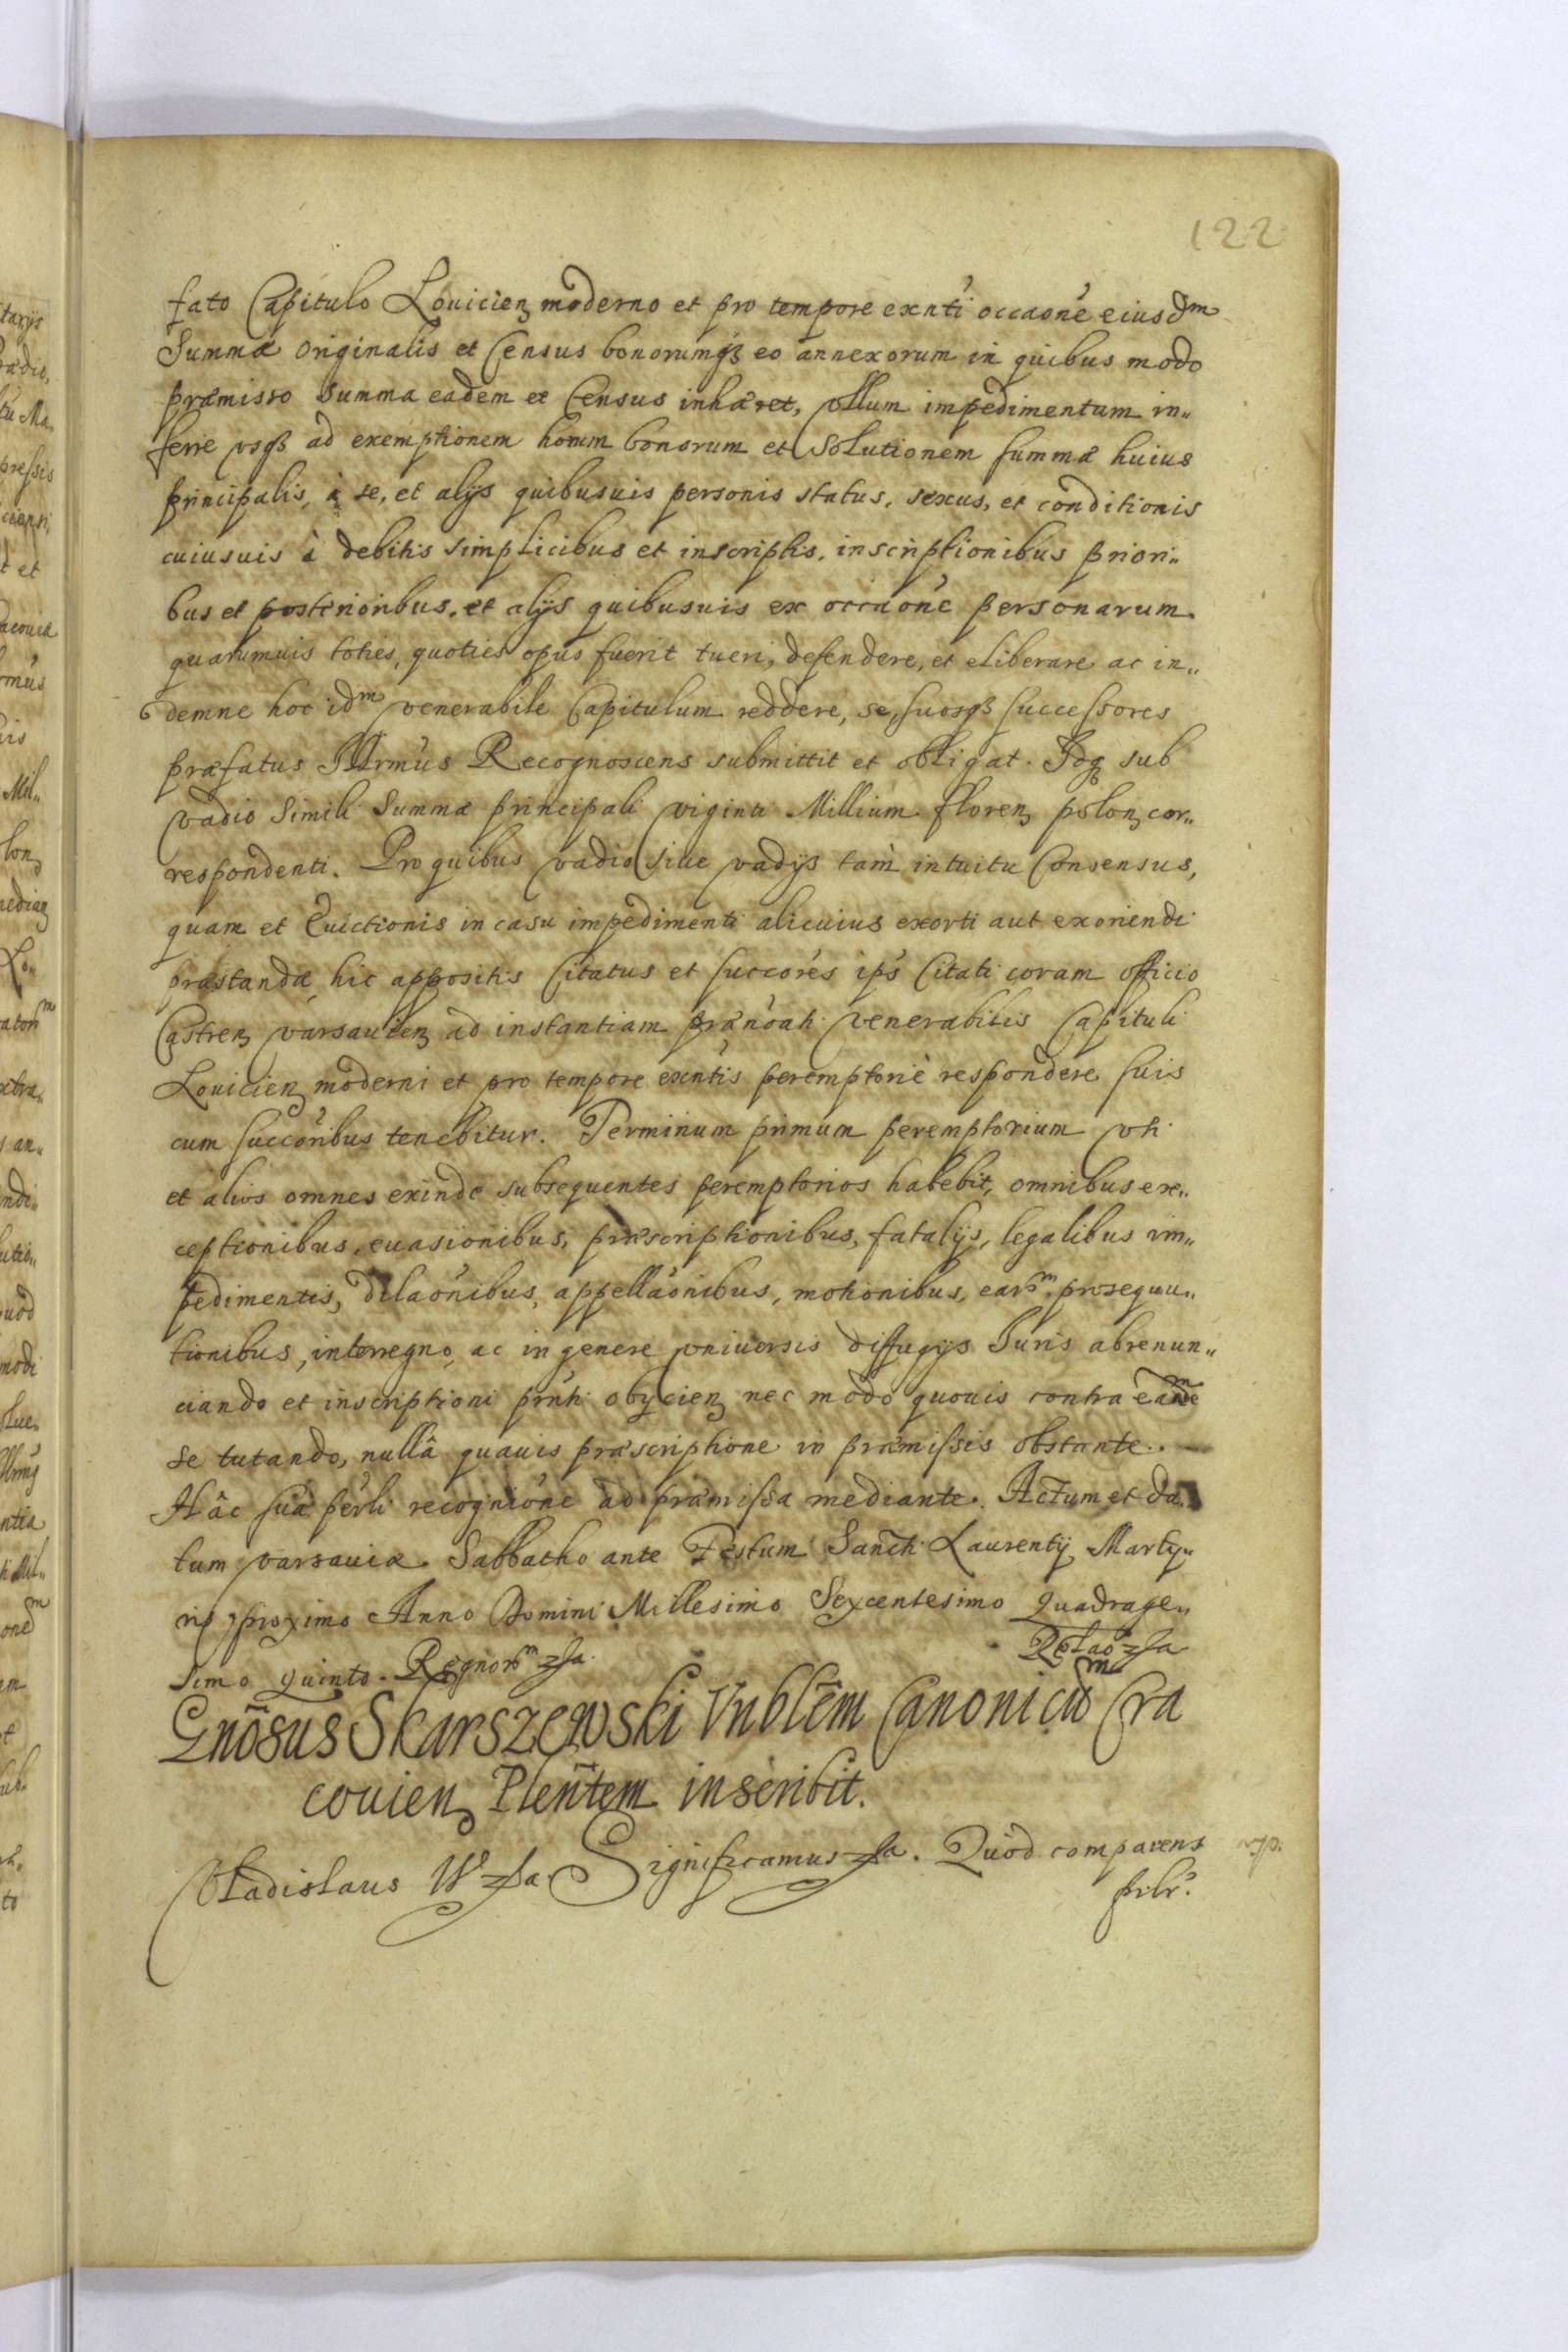 122
fato Capitulo Louicien moderno et pro tempore exnti occaone eiusdm
Summæ originalis et Census bonorumq eo annexorum in quibus modo
præmisso Summa eadem et Census inhæret, vllum impedimentum in„
ferre vsq ad exemptionem horum bonorum et Solutionem summæ huius
principalis, à se, et alijs quibusuis personis status, sexus, et conditionis
cuiusuis à debitis simplicibus et inscriptis, inscriptionibus priori„
bus et posterioribus, et alijs quibusuis ex occaone personarum
quarumuis toties, quoties opus fuerit tueri, defendere, et eliberare ac in„
demne hoc idm venerabile Capitulum reddere, se, suosq successores
præfatus Illrmus Recognoscens submittit et obligat. Idq sub
vadio simili Summæ principali viginti Millium floren polon cor„
respondenti. Pro quibus vadio siue vadijs tam intuitu Consensus,
quam et Euictionis in casu impedimenti alicuius exorti aut exoriendi
præstandæ hic appositis Citatus et succores ips Citati coram officio
Castren varsauien ad instantiam prænoati venerabilis Capituli
Louicien moderni et pro tempore exntis peremptoriè respondere suis
cum succoribus tenebitur. Terminum primum peremptorium vti
et alios omnes exinde subsequentes peremptorios habebit, omnibus ex„
ceptionibus, euasionibus, præscriptionibus, fatalijs, legalibus im„
pedimentis, dilaonibus, appellaonibus, motionibus, earm prosequu„
tionibus, interregno, ac in genere vniuersis diffugijs Iuris abrenun„
ciando et inscriptioni prnti obijcien nec modo quouis contra eande
se tutando, nullâ quauis præscriptione in præmissis obstante.
Hâc suâ perli recognione ad præmissa mediante. Actum et da„
tum varsauiæ Sabbatho ante Festum Sancti Laurentij Marty„
ris proximo Anno Domini Millesimo Sexcentesimo Quadrage„
simo quinto. Regnorm
Relao
Gnosus Skarszewski Vnblem Canonicum Cra
couien Plentem inscribit.
Vladislaus W Significamus. Quod comparens
prlr.